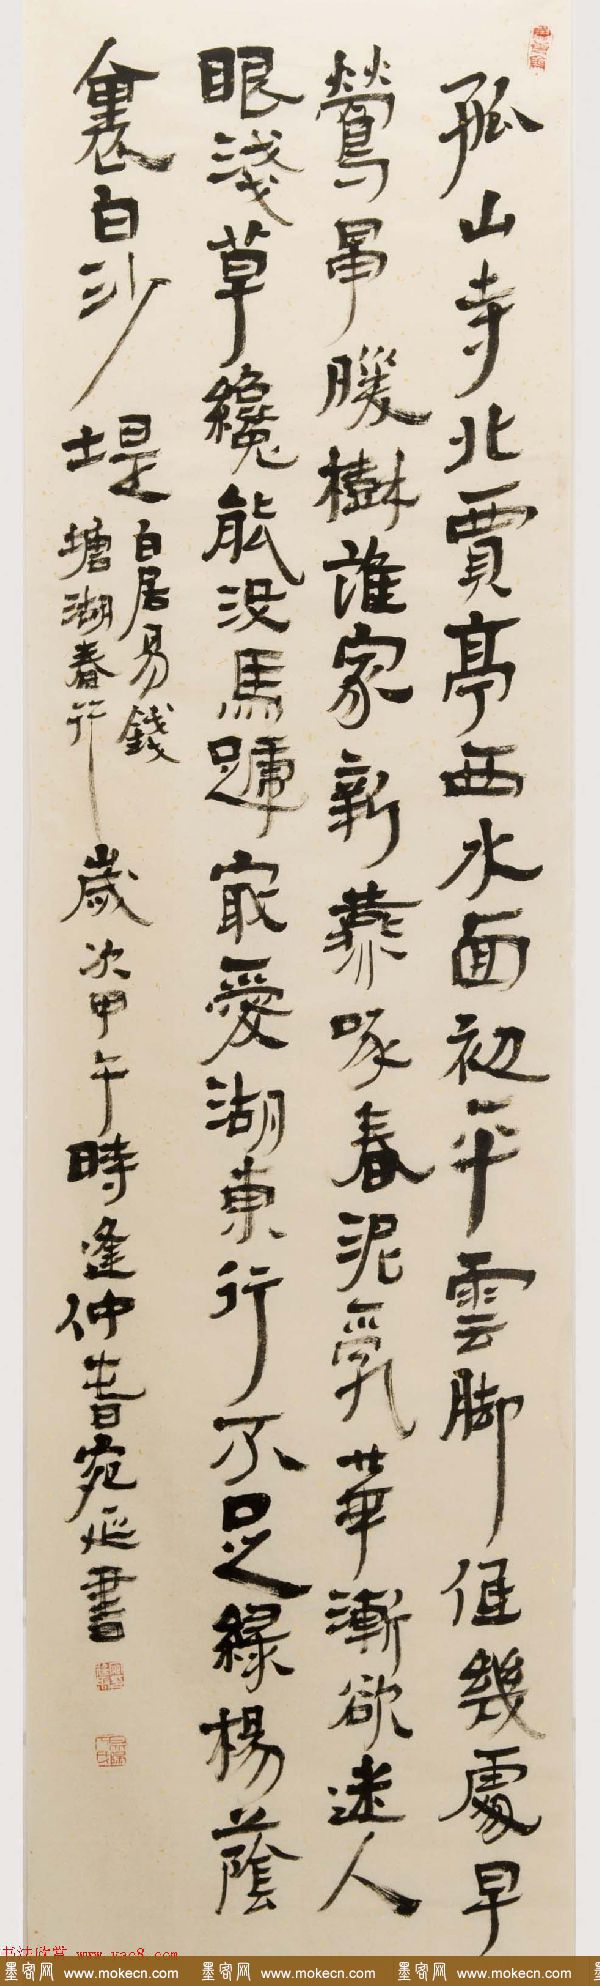 孤山寺北賈亭西水面初平雲脚低幾處早
鶯爭暖樹誰家新燕啄春泥亂華漸欲迷人
眼淺草纔能没馬蹄㝡愛湖東行不足綠楊蔭
裏白沙堤
白居易錢
塘湖春行
歲次甲午時逢仲春宛延書
书法欣赏 www.yac8.com
墨客网 www.mokecn.com 墨客网 www.mokecn.com 墨客网 www.mokecn.com 墨客网 www.mokecn.com